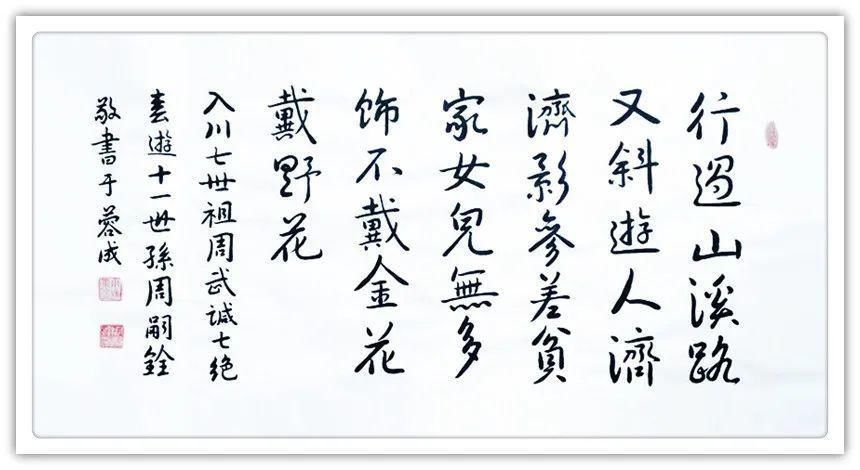 行過山溪路
又斜遊人濟
濟影參差貧
家女兒無多
飾不戴金花
戴野花
入川七世祖周武誠七絶
春遊十一世孫周嗣銓
敬書于蓉城